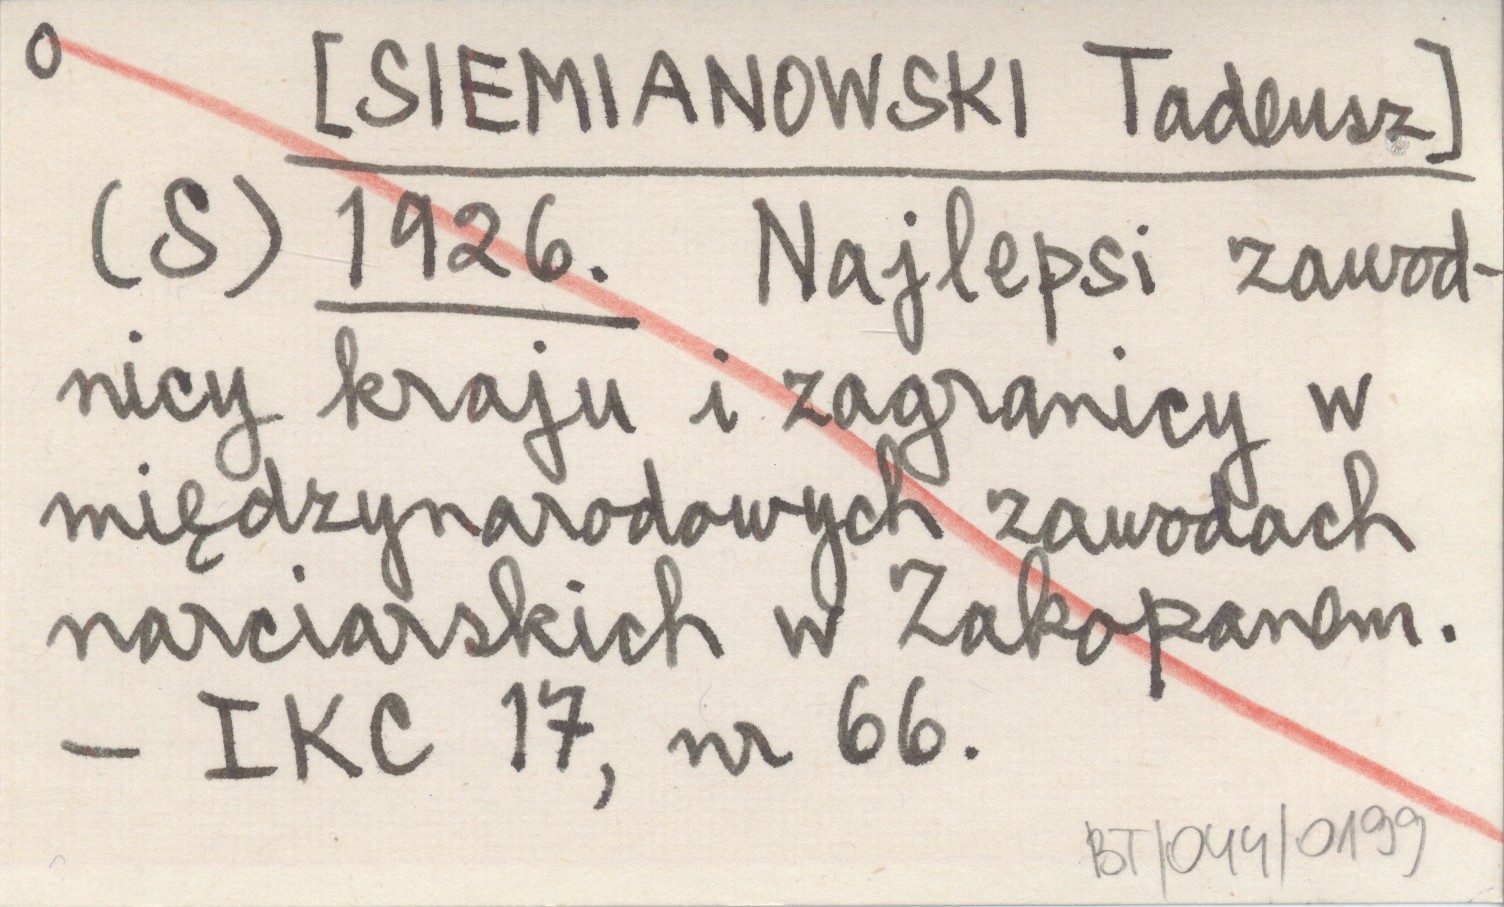 O [SIEMIANOWSKI Tadeusz]
(S) 1926. Najlepsi zawod-
nicy kraju i zagranicy w
międzynarodowych zawodach
narciarskich w Zakopanem.
– IKC 17, nr 66.
BT/044/0199